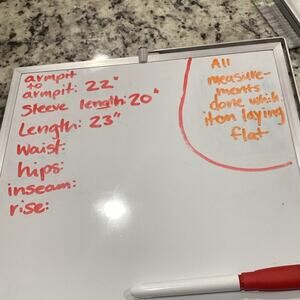 armpit
to
armpit: 22"
Sleeve length: 20"
Length: 23"
Waist:
hips:
inseam:
rise:
All
measure-
ments
done which
item laying
flat